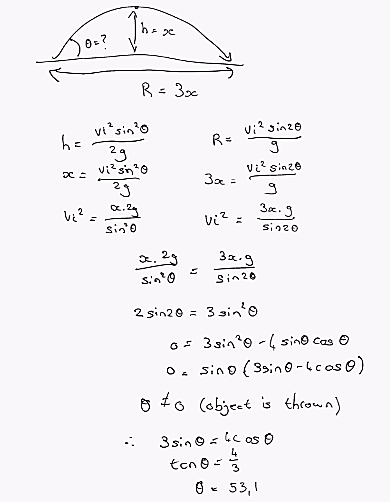 θ=? h=x
R = 3x
h = vi² sin²θ / 2g R = vi² sin2θ / g
x = vi² sin²θ / 2g 3x = vi² sin2θ / g
vi² = x.2g / sin²θ vi² = 3x.g / sin2θ
x.2g / sin²θ = 3x.g / sin2θ
2 sin2θ = 3 sin²θ
0 = 3 sin²θ - 4 sinθ cos θ
0 = sinθ (3sinθ - 4cosθ)
θ ≠ 0 (object is thrown)
∴ 3sinθ = 4cosθ
tanθ = 4/3
θ = 53,1